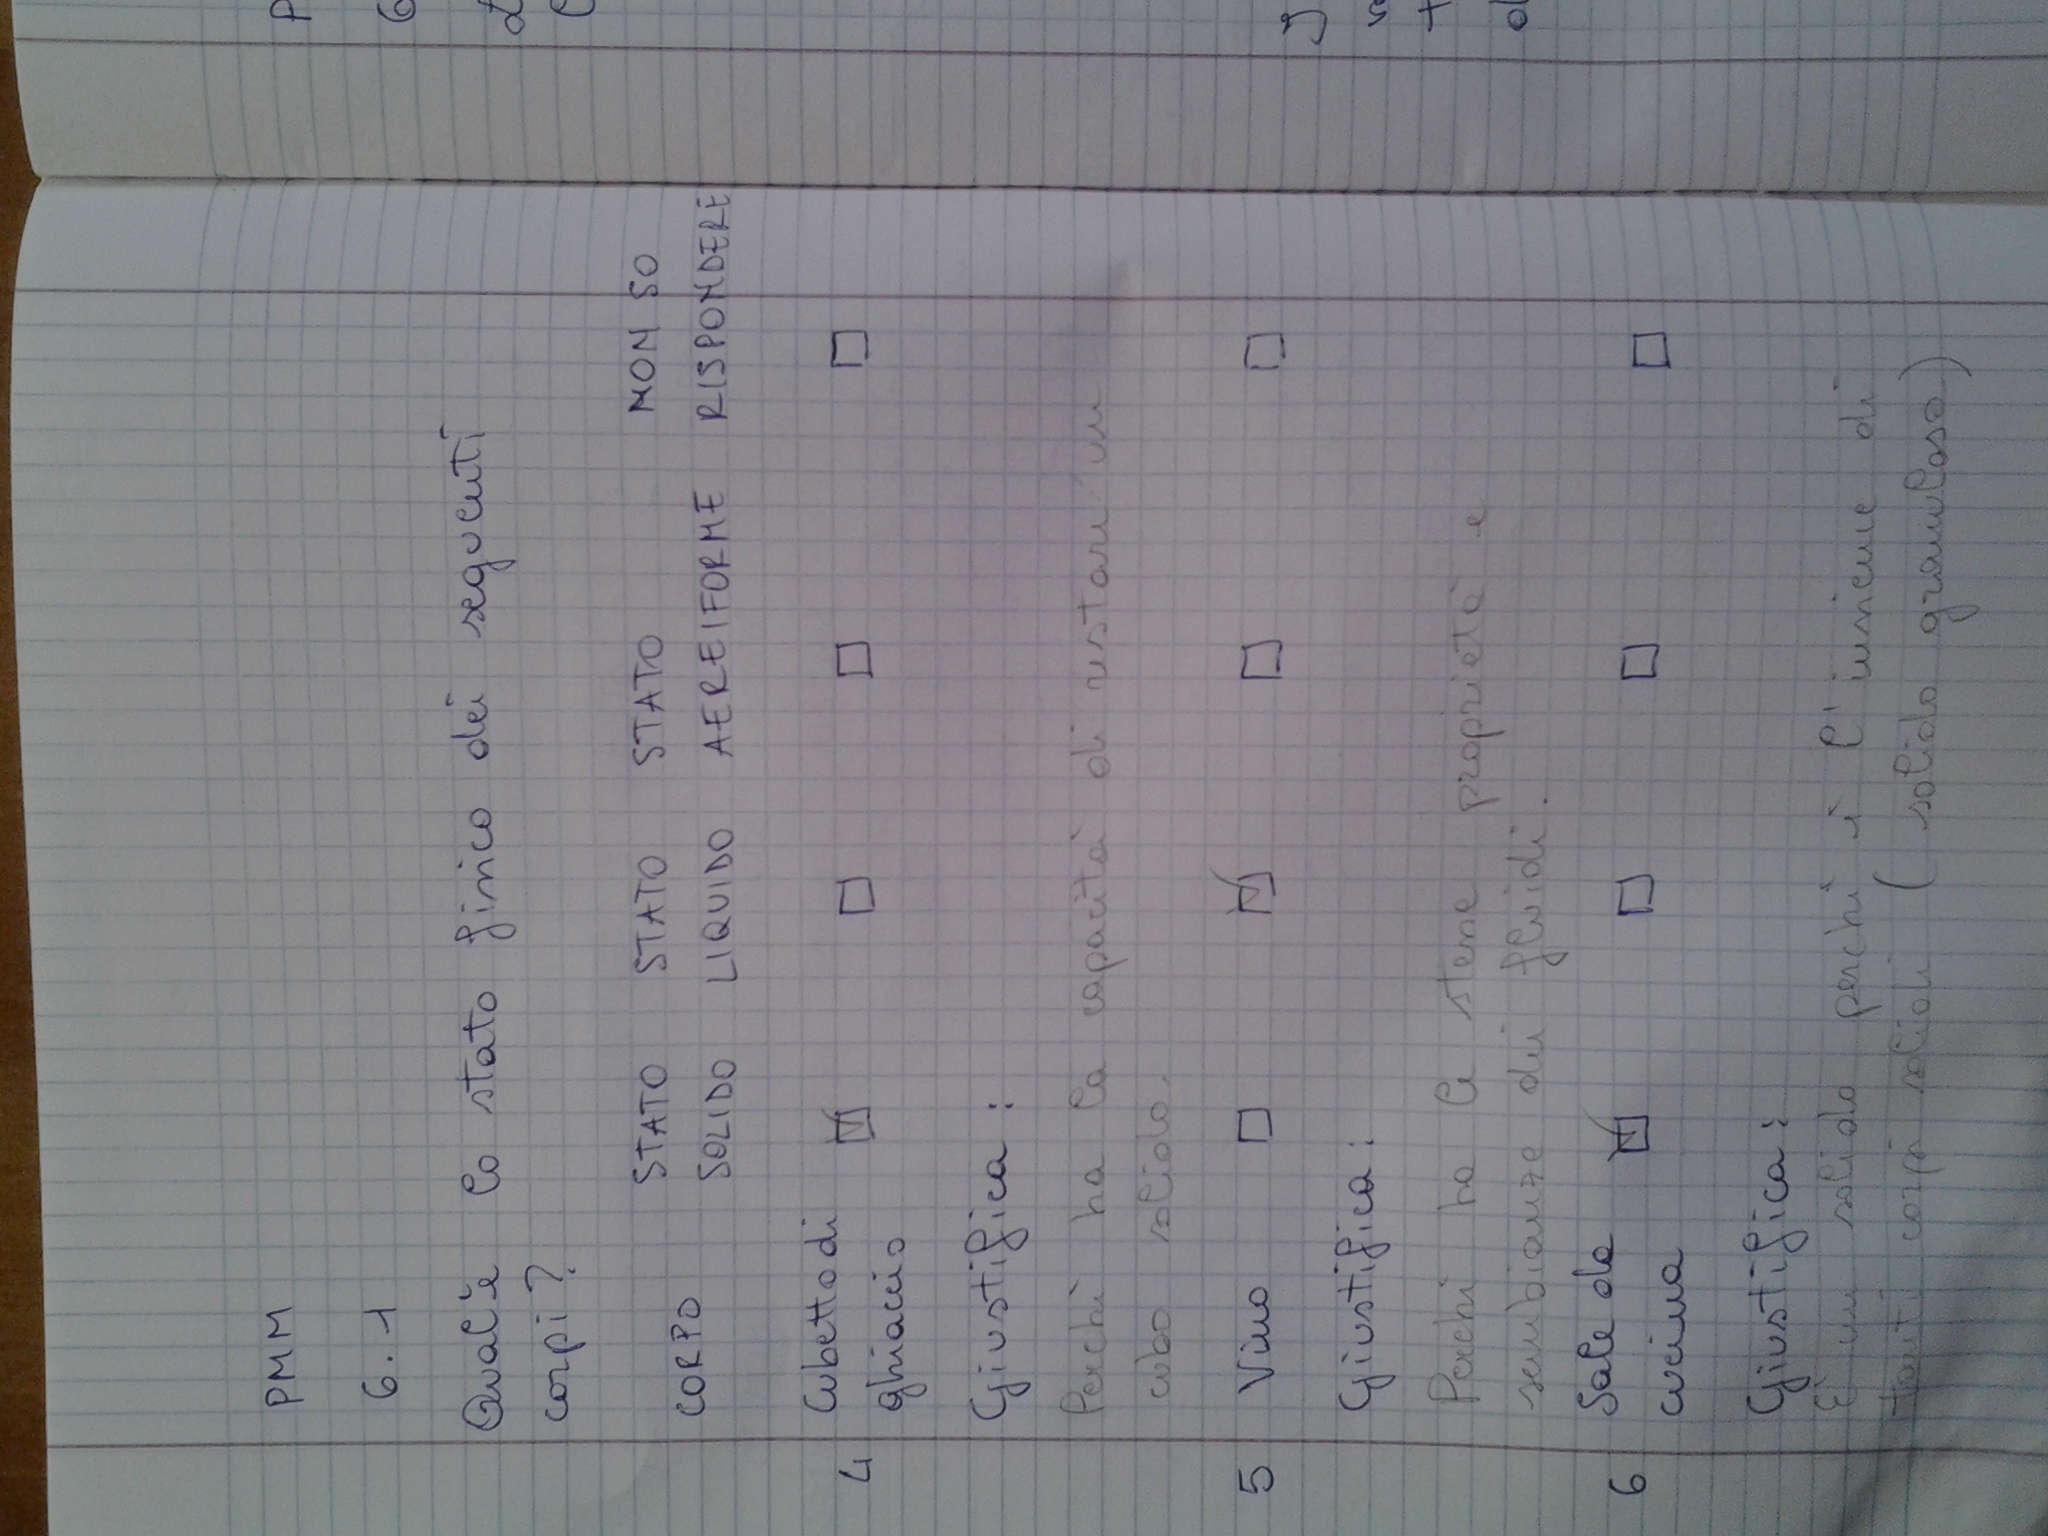 PMM
6.1
Qual'è lo stato fisico dei seguenti
corpi?
CORPO STATO SOLIDO STATO LIQUIDO STATO AEREIFORME NON SO RISPONDERE
4 Cubetto di ghiaccio ☑ ☐ ☐ ☐
Giustifica:
Perché ha la capacità di restare un
cubo solido.
5 Vino ☐ ☑ ☐ ☐
Giustifica:
Perché ha le stesse proprietà e
sembianze dei fluidi.
6 Sale da cucina ☑ ☐ ☐ ☐
Giustifica:
È un solido perché è l'insieme di
tanti corpi solidi (solido granuloso)